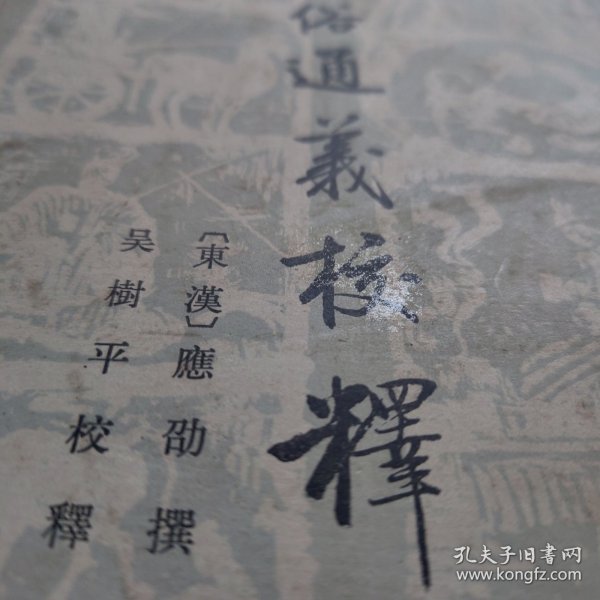 俗通義校釋
〔東漢〕應劭撰
吴樹平校釋
孔夫子旧書网
www.kongfz.com